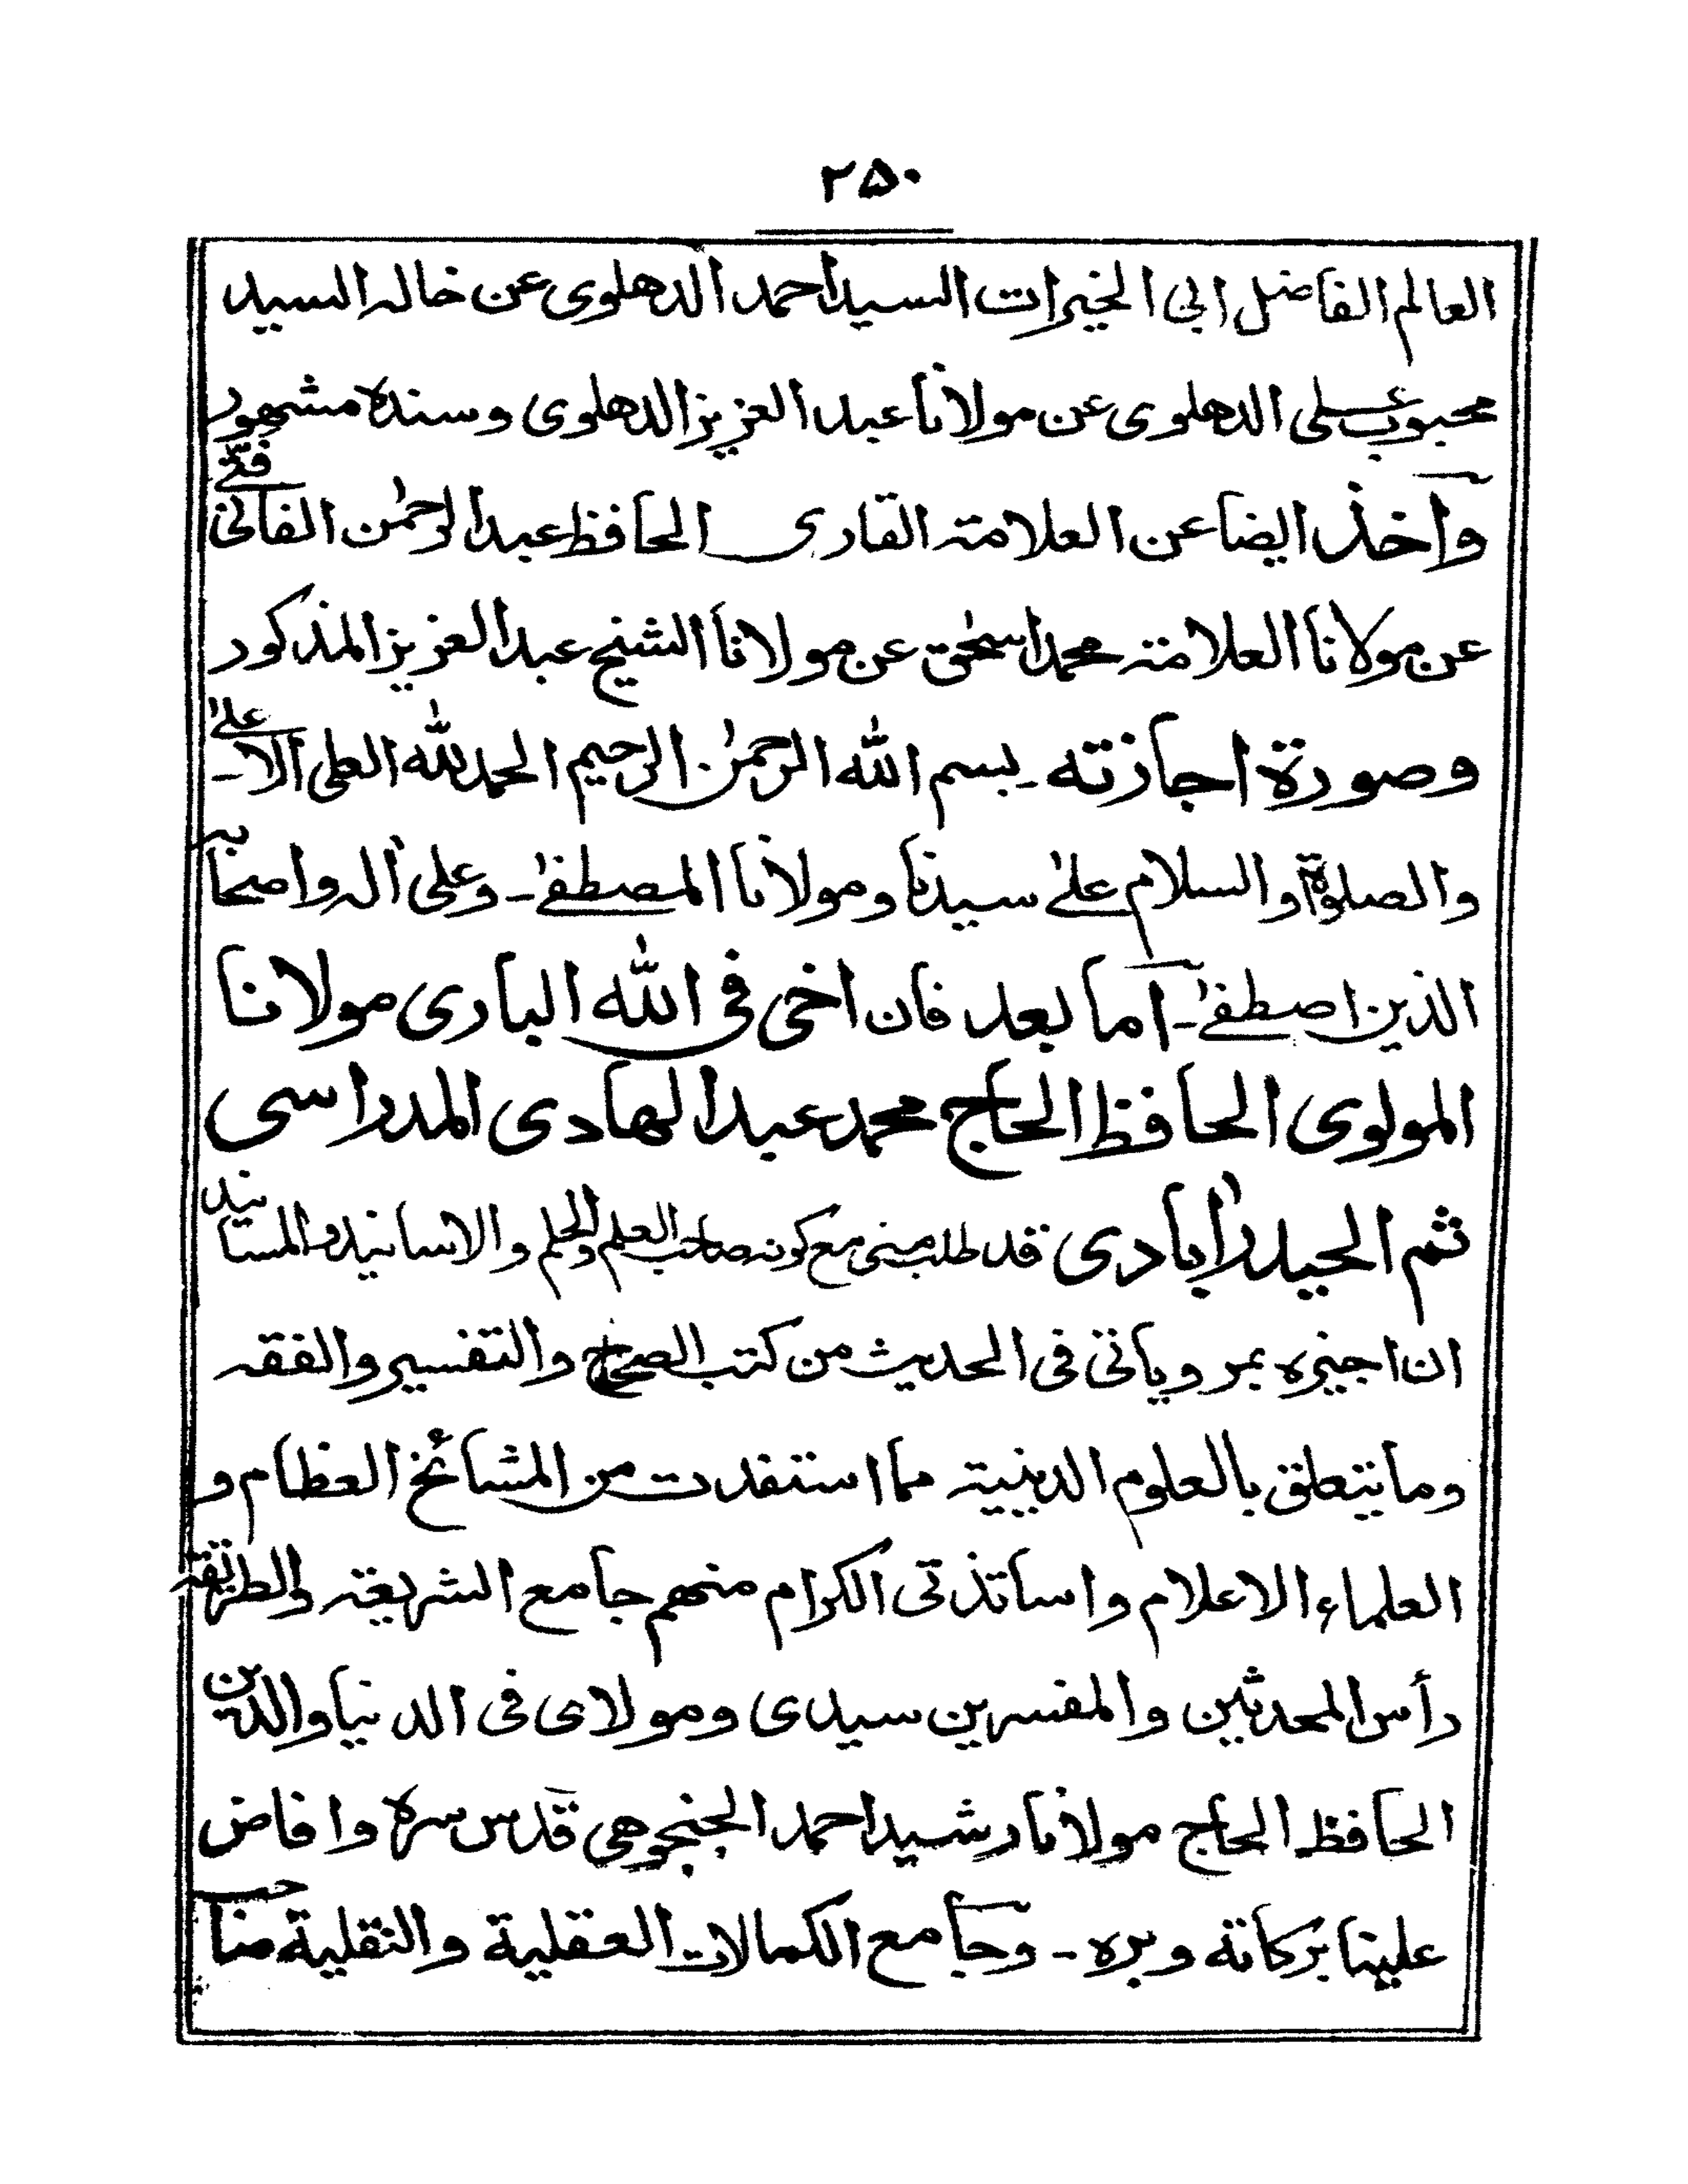 ۲۵۰
العالم الفاضل ابی الخیرات السید احمد الدهلوی عن خاله السید
محبوب علی الدهلوی عن مولانا عبد العزیز الدهلوی وسنده مشهور
واخذ ایضا عن العلامة القاری الحافظ عبد الرحمٰن الفانی فتی
عن مولانا العلامة محمد اسحٰق عن مولانا الشیخ عبد العزیز المذکور
وصورة اجازته ـ بسم الله الرحمٰن الرحیم الحمد لله العلی الاعلیٰ ـ
والصلوٰة والسلام علیٰ سیدنا ومولانا المصطفیٰ ـ وعلی اٰله واصحابه
الذین اصطفیٰ ـ اما بعد فان اخی فی الله الباری مولانا
المولوی الحافظ الحاج محمد عبد الهادی المدراسی
ثم الحیدراٰبادی قد طلب منی مع کونه صاحب العلم والحلم والاسانید والمسانید
ان اجیزه بمرویاتی فی الحدیث من کتب الصحاح والتفسیر والفقه
وما یتعلق بالعلوم الدینیة مما استفدت من المشائخ العظام و
العلماء الاعلام واساتذتی الکرام منهم جامع الشریعة والطریقة
رأس المحدثین والمفسرین سیدی ومولای فی الدنیا والدین
الحافظ الحاج مولانا رشید احمد الجنجوهی قدس سره وافاض
علینا برکاته وبره ـ وجامع الکمالات العقلیة والنقلیة صاحب